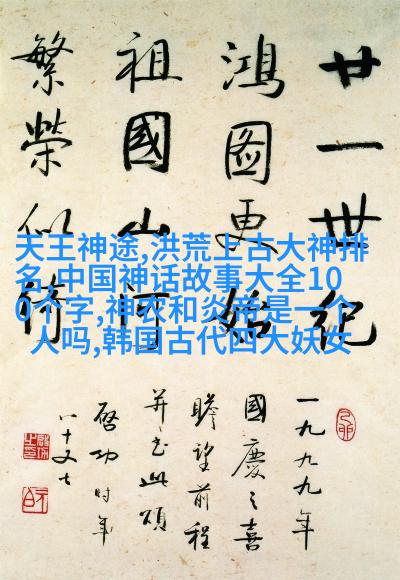 天王神途,洪荒上古大神排
名,中国神话故事大全10
0个字,神农和炎帝是一个
人吗,韩国古代四大妖女
廿一世紀
鴻图更始
祖國山河
繁荣似绮
一九九九年
國慶之喜
瞻望前程
并书此頌
啓功时年
八十又七